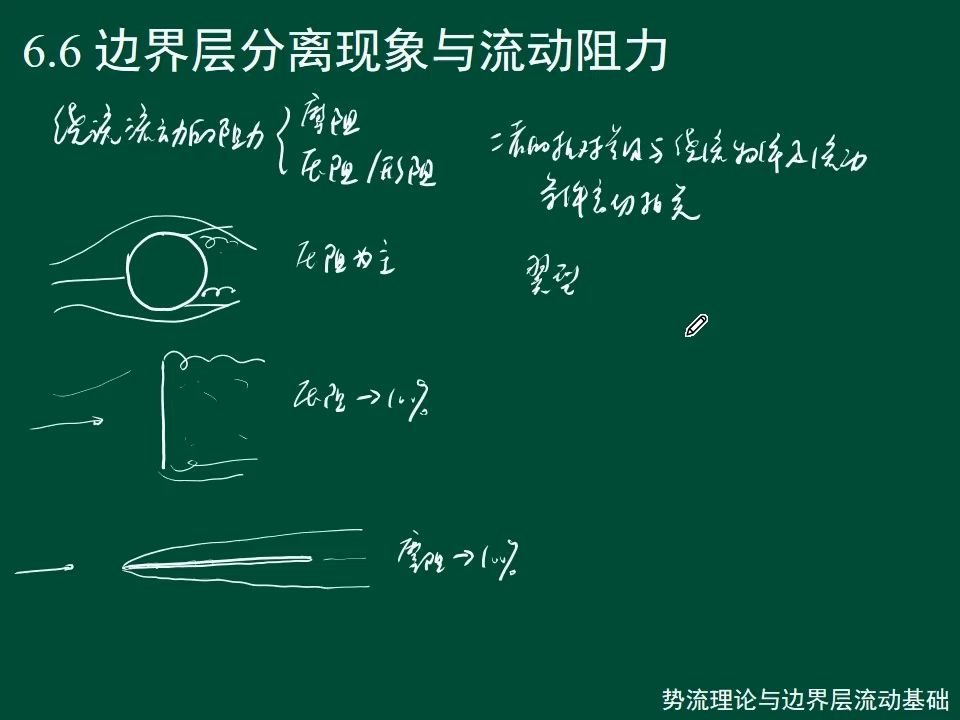 6.6 边界层分离现象与流动阻力
绕流流动的阻力
摩阻
压阻/形阻
二者的相对差及与绕流物体及流动
条件密切相关
压阻为主
翼型
压阻→100%
摩阻→100%
势流理论与边界层流动基础